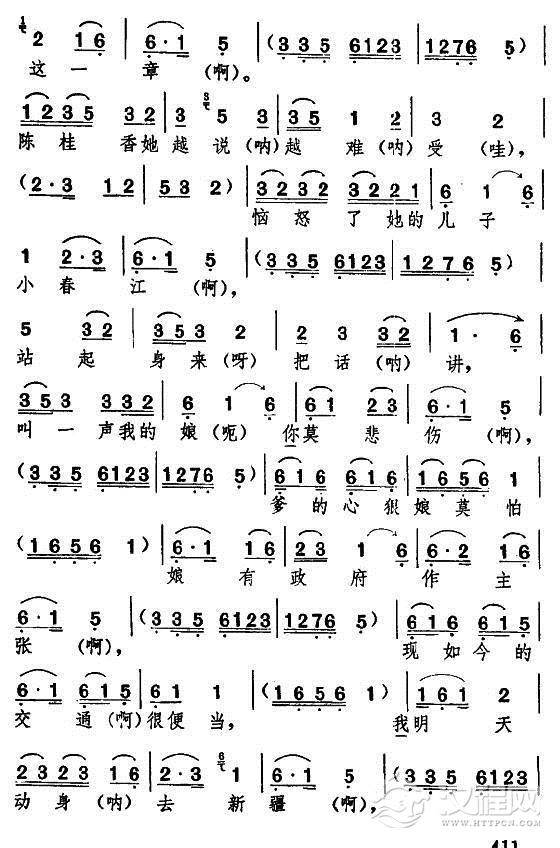 2 1 6 | 6·1 5 | (3 3 5 6123 | 1276 5) |
这一章(啊)。
1235 32 | 3 5 3 | 35 1 2 | 3 2 |
陈桂香她越说(呐)越难(呐)受(哇),
(2·3 12 | 53 2) | 3232 3221 | 6 1 6 |
恼怒了她的儿子
1 2·3 | 6·1 5 | (335 6123 | 1276 5) |
小春江(啊),
5 32 | 353 2 | 2 3 32 | 1· 6 |
站起身来(呀)把话(呐)讲,
353 332 | 6 1 6 | 61 23 | 6·1 5 |
叫一声我的娘(呢)你莫悲伤(啊),
(335 6123 | 1276 5) | 616 616 | 1656 1 |
爹的心狠娘莫怕
(1656 1) | 6·1 12 | 23 1 6 | 6·2 16 |
娘有政府作主
6·1 5 | (335 6123 | 1276 5) | 616 616 |
张(啊),现如今的
6·1 615 | 61 1 | (1656 1) | 161 2 |
交通(啊)很便当,我明天
2323 16 | 2·3 1 | 6·1 5 | (335 6123 |
动身(呐)去新疆(啊),
文程网
WWW.HTTPCN.COM
411